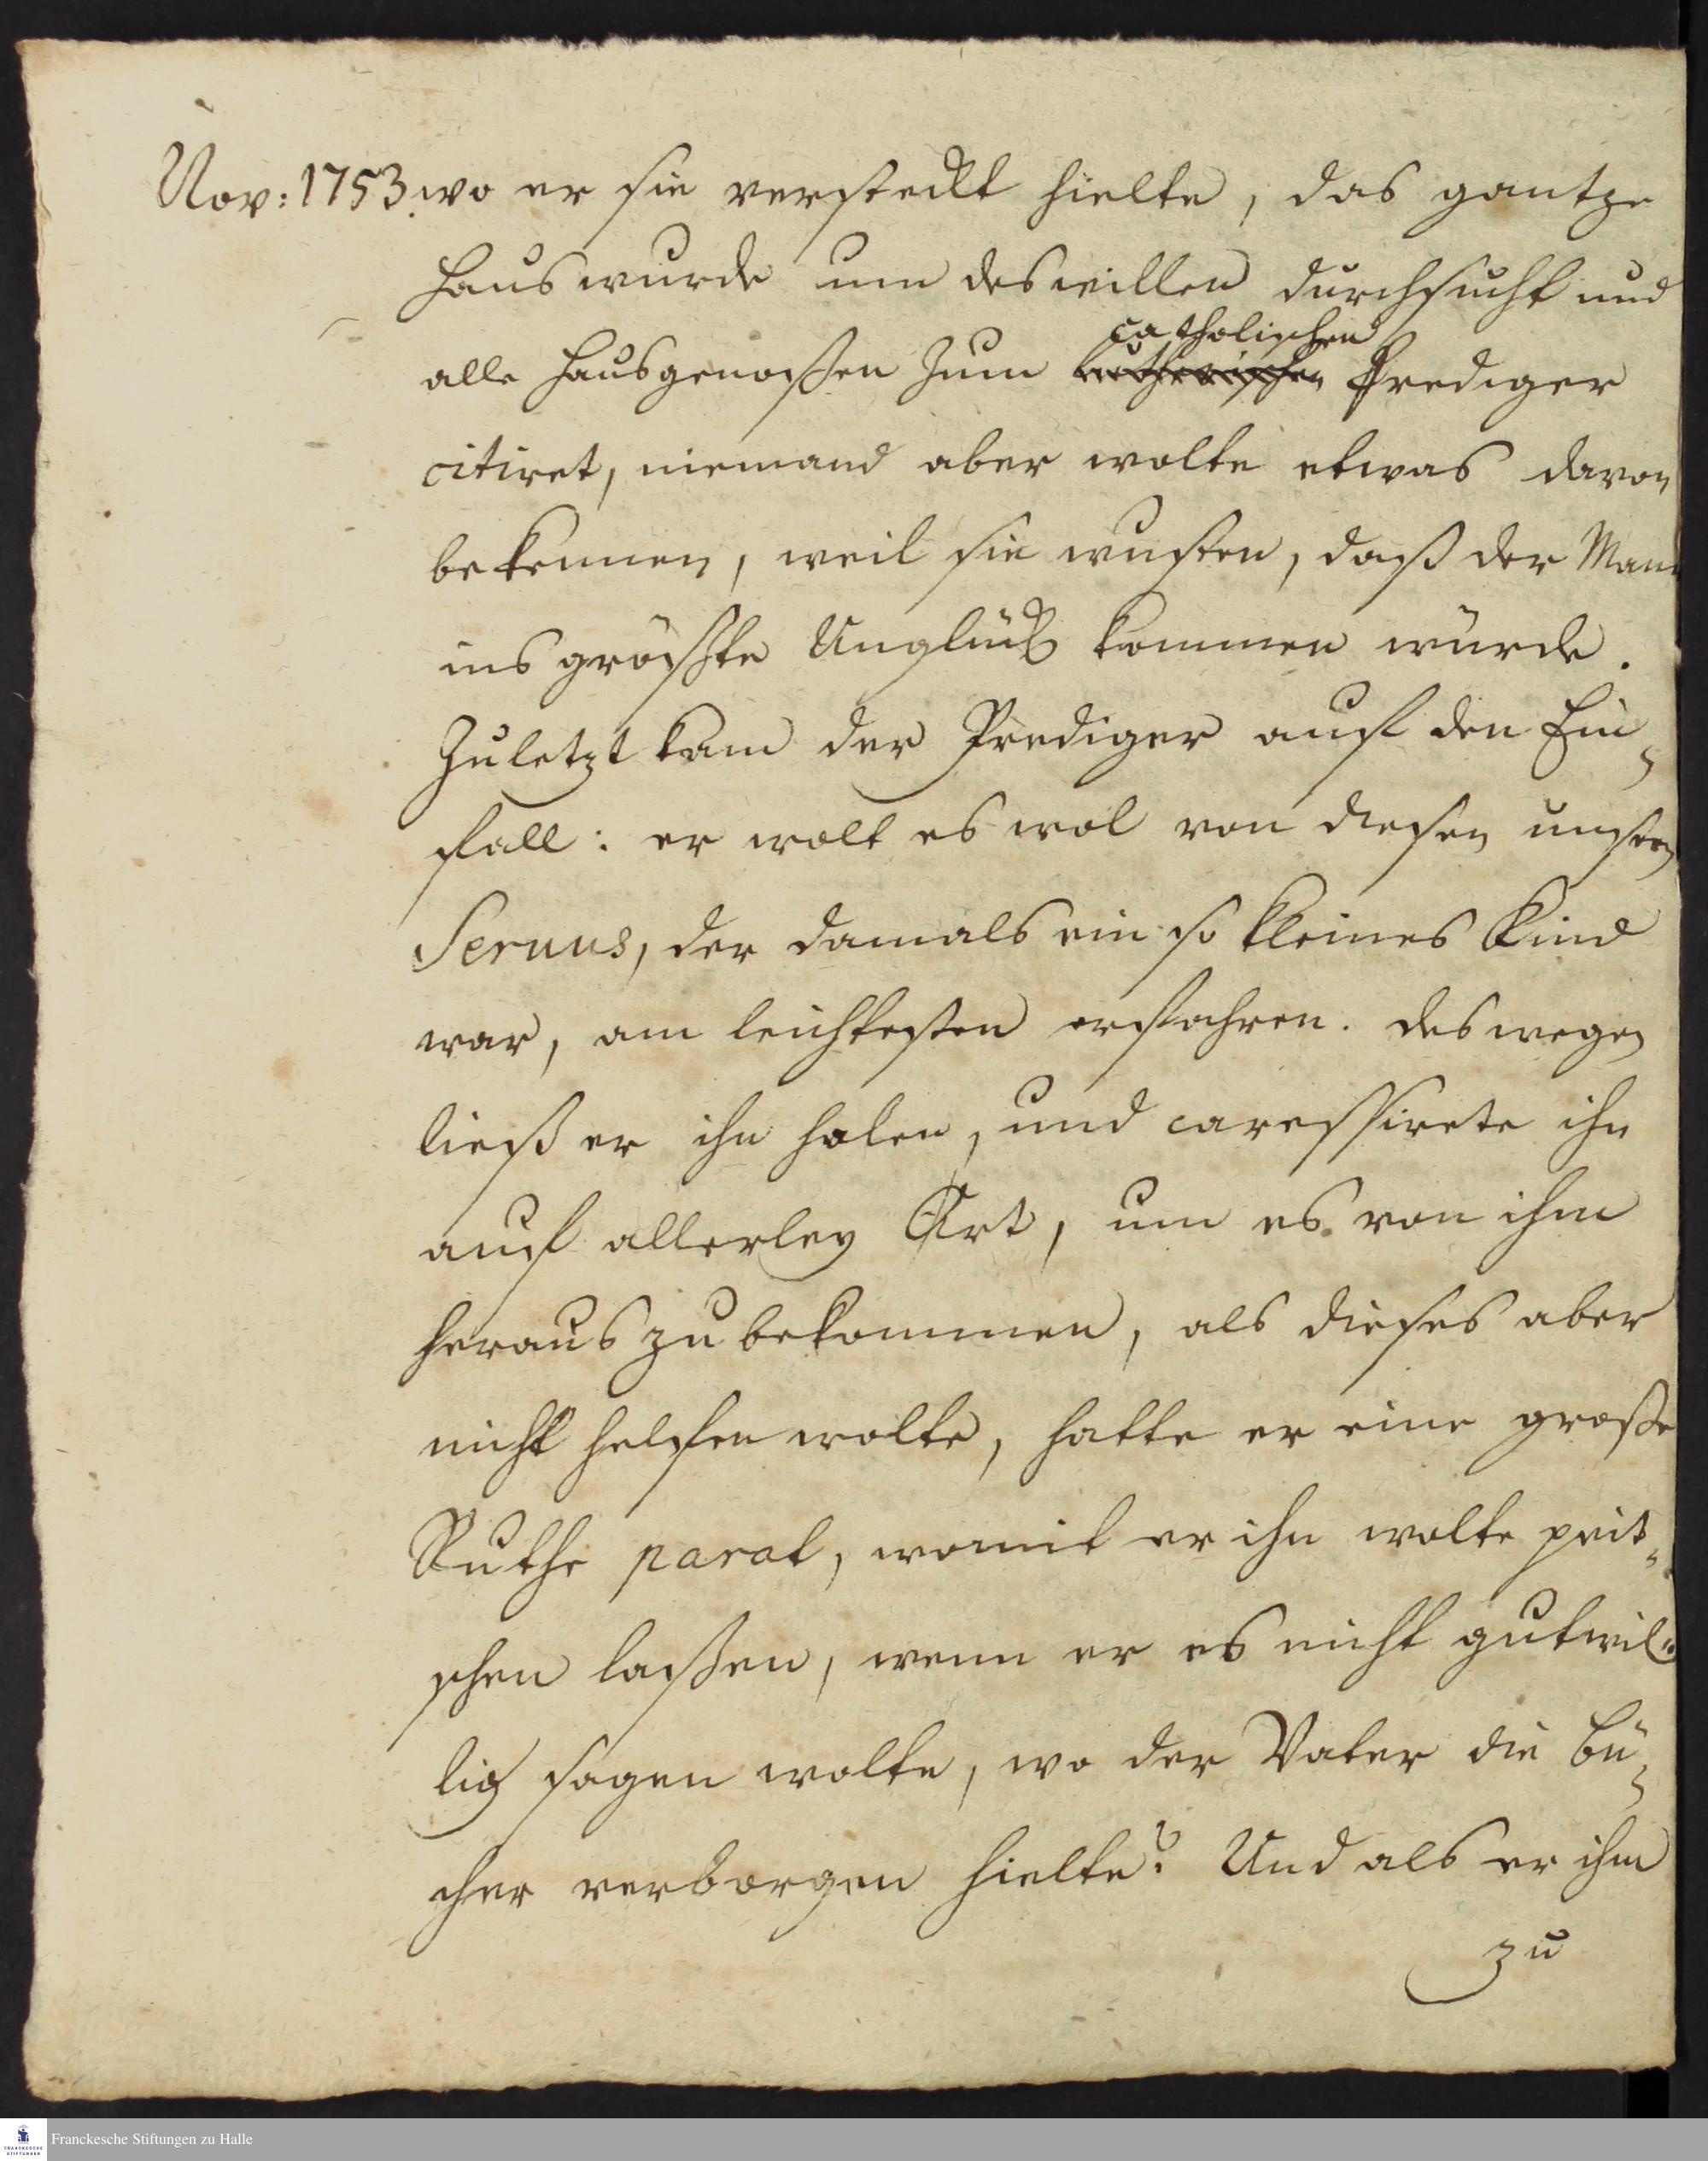 Nov: 1753. wo er sie versteckt hielte, das gantze
Haus wurde um deswillen durchsucht und
catholischen
alle Hausgenoßen zum lutherischen Prediger
citiret, niemand aber wolte etwas davon
bekennen, weil sie wusten, daß der Mann
ins gröste Unglück kommen würde.
Zuletzt kam der Prediger auf den Ein-
fall: er wolt es wol von diesen unsern
Seruus, der damals ein so kleines Kind
war, am leichtesten erfahren. deswegen
ließ er ihn holen, und caressirete ihn
auf allerley Art, um es von ihm
heraus zu bekommen, als dieses aber
nicht helfen wolte, hatte er eine große
Ruthe parat, womit er ihn wolte peit-
schen laßen, wenn er es nicht gutwil-
lig sagen wolte, wo der Vater die Bü-
cher verborgen hielte? Und als er ihm
zu
Franckesche Stiftungen zu Halle
FRANCKESCHE
STIFTUNGEN